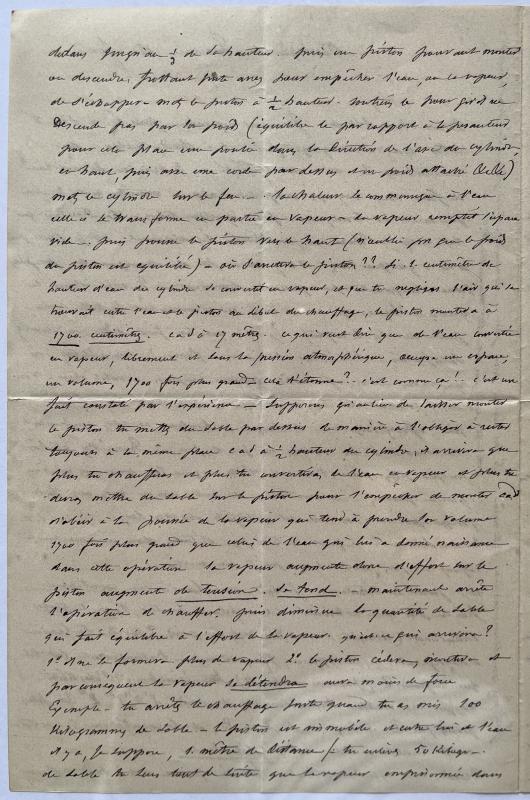 dedans jusqu'au 1/3 de sa hauteur. puis un piston pouvant monter
ou descendre, frottant juste assez pour empêcher l'eau, ou la vapeur,
de s'échapper. mets le piston à 1/2 hauteur. soutiens le pour qu'il ne
Descende pas par son poids (équilibre le par rapport à la pesanteur
pour cela place une poulie dans la direction de l'axe du cylindre
en haut, puis une corde par dessus et un poids attaché
mets le cylindre sur le feu. la chaleur se communique à l'eau
celle ci se transforme en partie en vapeur. la vapeur remplit l'espace
vide. puis pousse le piston vers le haut (n'oublie pas que le poids
du piston est équilibré) — où s'arrêtera le piston ?? Si 1 centimètre de
hauteur d'eau du cylindre se convertit en vapeur, et que tu négliges l'air qui se
trouvait entre l'eau et le piston au début du chauffage, le piston montera à
1700 centimètres. cad à 17 mètres. ce qui veut dire que de l'eau convertie
en vapeur, librement et sous la pression atmosphérique, occupe un espace,
un volume, 1700 fois plus grand — cela t'étonne ? c'est comme ça ! c'est un
fait constaté par l'expérience — Supposons qu'au lieu de laisser monter
le piston tu mettes du sable par dessus de manière à l'obliger à rester
toujours à la même place cad à 1/2 hauteur du cylindre, il arrivera que
plus tu chaufferas et plus tu convertiras de l'eau en vapeur et plus tu
devras mettre de sable sur le piston pour l'empêcher de monter cad
d'obéir à la poussée de la vapeur qui tend à prendre son volume
1700 fois plus grand que celui de l'eau qui lui a donné naissance
dans cette opération la vapeur augmente donc d'effort sur le
piston augmente de tension. se tend. — maintenant arrête
l'opération de chauffer. puis diminue la quantité de sable
qui fait équilibre à l'effort de la vapeur. qu'est-ce qui arrivera ?
1° il ne se formera plus de vapeur 2° le piston cédera, montera et
par conséquent la vapeur se détendra aura moins de force
Exemple — tu arrêtes le chauffage juste quand tu as mis 100
Kilogrammes de sable — le piston est immobile et entre lui et l'eau
il y a, je suppose, 1 mètre de distance / tu enlèves 50 Kilogr.
de sable tu sens tout de suite que la vapeur emprisonnée dans